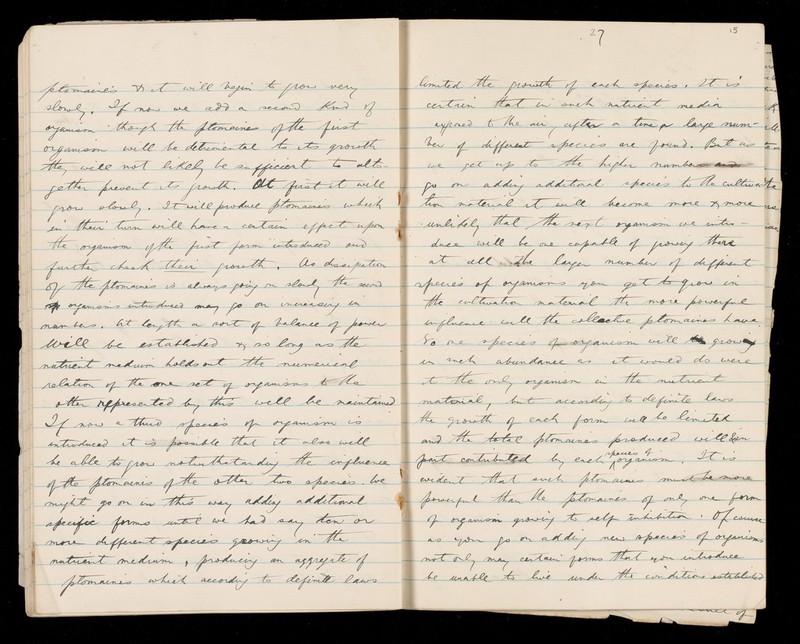 ptomaines & it will begin to grow very
slowly. If now we add a second kind of
organism though the ptomaines of the first
organism will be detrimental to its growth
they will not likely be sufficient to alto-
gether prevent its growth. At first it will
grow slowly. It will produce ptomaines which
in their turn will have a certain effect upon
the organism of the first form introduced and
further check their growth. As dissipation
of the ptomaines is always going on slowly the second
organisms introduced may go on increasing in
numbers. At length a sort of balance of power
will be established & so long as the
nutrient medium holds out the numerical
relation of the one set of organisms to the
other represented by this will be maintained
If now a third species of organism is
introduced it is possible that it also will
be able to grow notwithstanding the influence
of the ptomaines of the other two species. We
might go on in this way adding additional
specific forms until we had say ten or
more different species growing in the
nutrient medium, producing an aggregate of
ptomaines which according to definite laws
27
15
limited the growth of each species. It is
certain that in such nutrient media
exposed to the air, after a time a large num-
ber of different species are found. But as
we get up to the higher numbers and
go on adding additional species to the cultiva-
tion material it will become more & more
unlikely that the next organism we intro-
duce will be one capable of growing there
at all. The larger number of different
species of organisms you get to grow in
the cultivation material the more powerful
influence will the collective ptomaines have.
So one species of organism will growing
in such abundance as it would do were
it the only organism in the nutrient
material, but according to definite laws
the growth of each form will be limited
and the total ptomaines produced will be in
part contributed by each species of organism. It is
evident that such ptomaines must be more
powerful than the ptomaines of only one form
of organism growing to self inhibition. Of course
as you go on adding new species of organisms
not only may certain forms that you introduce
be unable to live under the conditions established